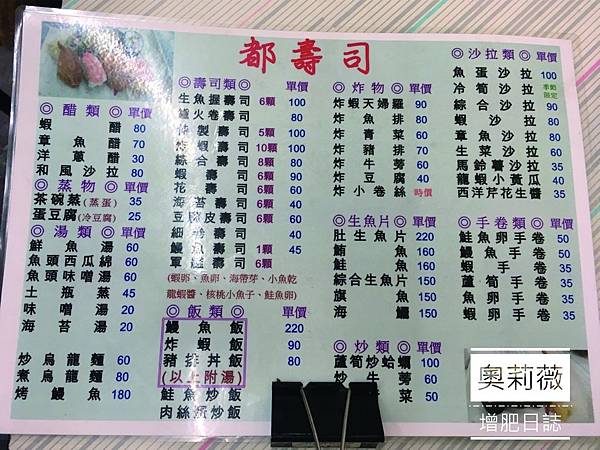 都壽司
◎醋類◎ 單價
蝦醋 80
章魚醋 70
洋蔥醋 30
和風沙拉 80
◎蒸物◎ 單價
茶碗蒸(蒸蛋) 35
蛋豆腐(冷豆腐) 25
◎湯類◎ 單價
鮮魚湯 60
魚頭西瓜綿 60
魚頭味噌湯 60
土瓶蒸 45
味噌湯 20
海苔湯 20
炒烏龍麵 60
煮烏龍麵 80
烤鰻魚 180
◎壽司類◎ 單價
生魚握壽司 6顆 100
爐火卷壽司 80
特製壽司 5顆 100
炸蝦壽司 10顆 100
綜合壽司 8顆 80
蝦壽司 6顆 60
花壽司 6顆
海苔壽司 6顆
豆腐皮壽司 6顆
細卷壽司
鰻魚壽司 1顆 45
軍艦壽司 6顆
(蝦卵、魚卵、海帶芽、小魚乾
龍蝦醬、核桃小魚子、鮭魚卵)
◎飯類◎ 單價
鰻魚飯 220
炸蝦飯 90
豬排丼飯 80
(以上附湯)
鮭魚炒飯
肉絲蛋炒飯
◎炸物◎ 單價
炸蝦天婦羅 90
炸魚排 80
炸青菜 60
炸豬排 70
炸牛蒡 60
炸豆腐 40
炸小卷絲 時價
◎生魚片◎ 單價
肚生魚片 220
鮪魚 160
鮭魚 160
綜合生魚片 150
旗魚 150
海鱺 150
◎炒類◎ 單價
蘆筍炒蛤蠣
炒牛蒡 60
炒菜 50
◎沙拉類◎ 單價
魚蛋沙拉 100
冷筍沙拉 季節限定
綜合沙拉 90
蝦沙拉 80
章魚沙拉 80
生菜沙拉 60
馬鈴薯沙拉 35
龍蝦小黃瓜 40
西洋芹花生醬 35
◎手卷類◎ 單價
鮭魚卵手卷 50
鰻魚手卷 50
蝦手卷 35
蘆筍手卷 35
魚卵手卷 35
海鮮手卷 35
奧莉薇
增肥日誌